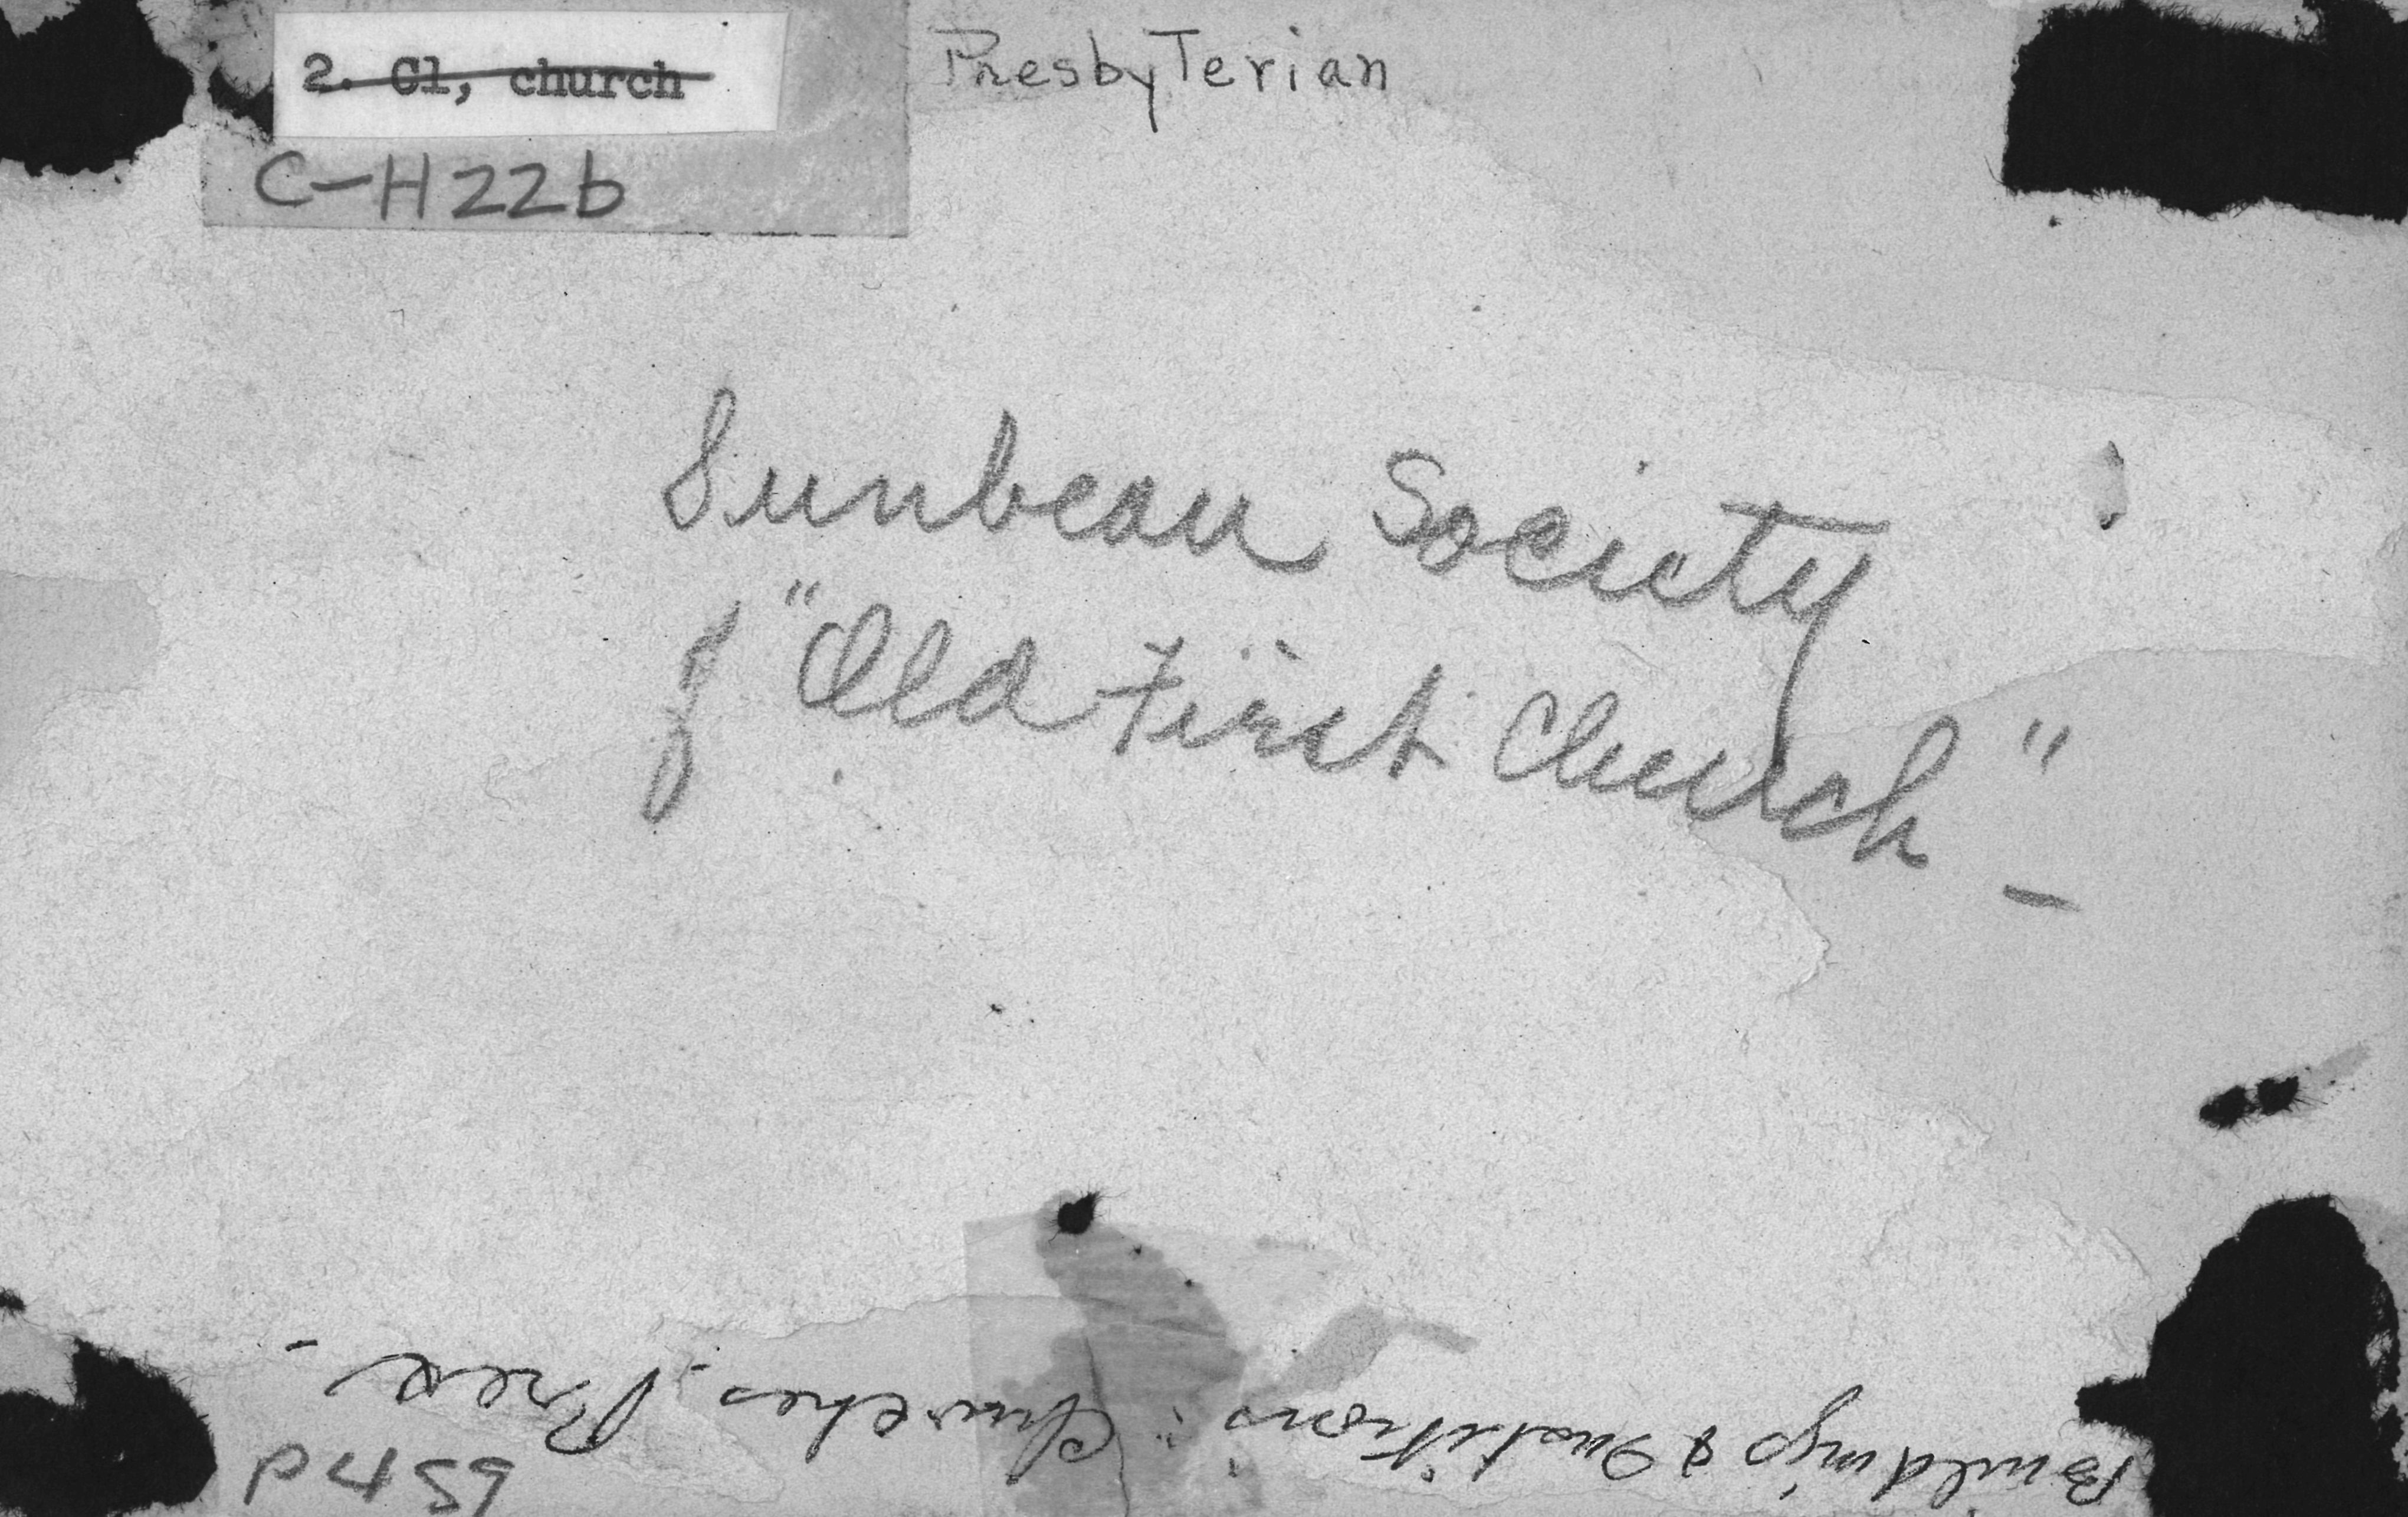 2. Cl, church
Presbyterian
C-H22b
Sunbeam Society
of "Old First Church" -
Buildings & Institutions: Churches, Pres.
P459